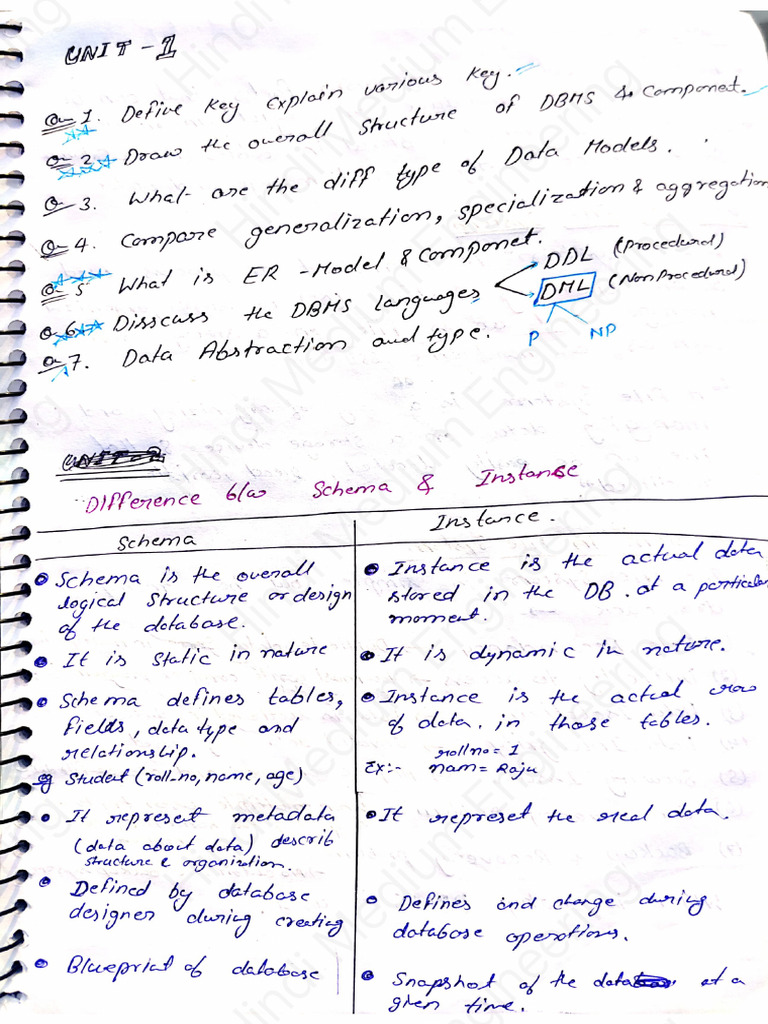 UNIT-1
Q-1. Define Key Explain various Key.
Q-2 Draw the overall Structure of DBMS & Componet.
Q-3. What are the diff type of Data Models.
Q-4. Compare generalization, specialization & aggregation
Q-5 What is ER-Model & Componet.
Q-6 Disscuss the DBMS languages
DDL (Procedural)
DML (NonProcedural)
P NP
Q-7. Data Abstraction and type.
Difference b/w Schema & Instance
Schema
Instance.
Schema is the overall
logical structure or design
of the database.
It is Static in nature
Schema defines tables,
fields, data type and
relationship.
eg Student (roll-no, name, age)
It represet metadata
(data about data) describ
structure & organiztion.
Defined by database
designer during creating
Blueprint of database
Instance is the actual data
stored in the DB. at a particular
moment.
It is dynamic in nature.
Instance is the actual row
of data. in those tables.
rollno = 1
Ex:- nam = Raju
It represet the real data.
Defines and change during
database operations.
Snapshot of the data at a
given time.
Hindi Medium Engineering